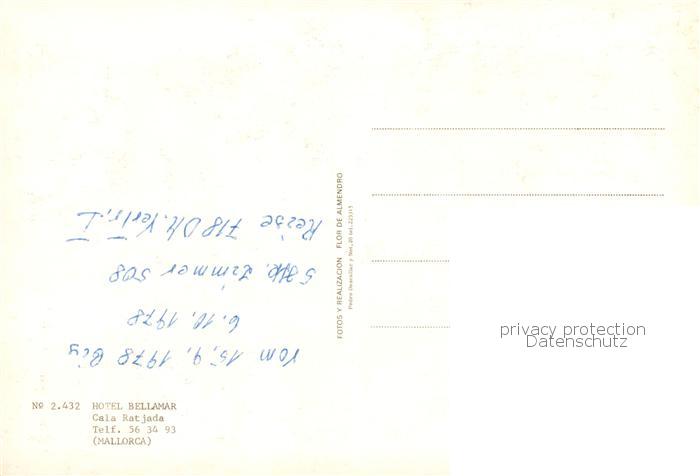 Vom 15.9.1978 Bis
6.10.1978
Zimmer 508
Reise 718 DM.
FOTOS Y REALIZACION FLOR DE ALMENDRO
Nº 2.432 HOTEL BELLAMAR
Cala Ratjada
Telf. 56 34 93
(MALLORCA)
privacy protection
Datenschutz